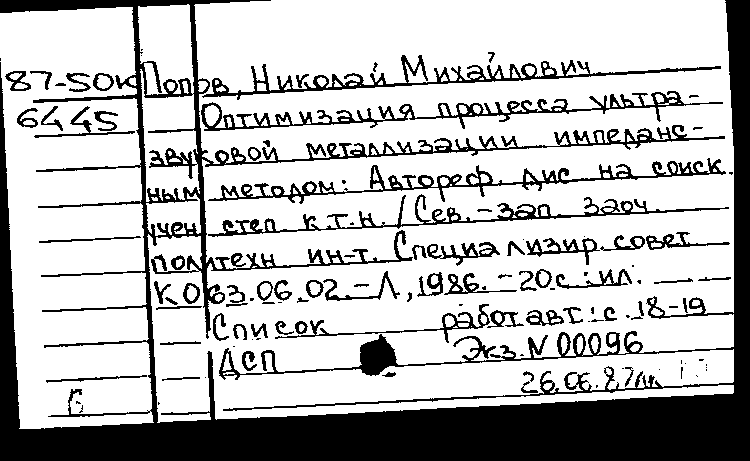 87-50к Попов, Николай Михайлович
6445 Оптимизация процесса ультра-
звуковой металлизации импеданс-
ным методом: Автореф. дис на соиск.
учен степ к.т.н. / Сев.-зап заоч.
политехн ин-т. Специализир. совет
К 063.06.02. - Л, 1986. - 20с : ил.
Список работ авт: с. 18-19
ДСП Экз. N 00096
26.06.87
Б